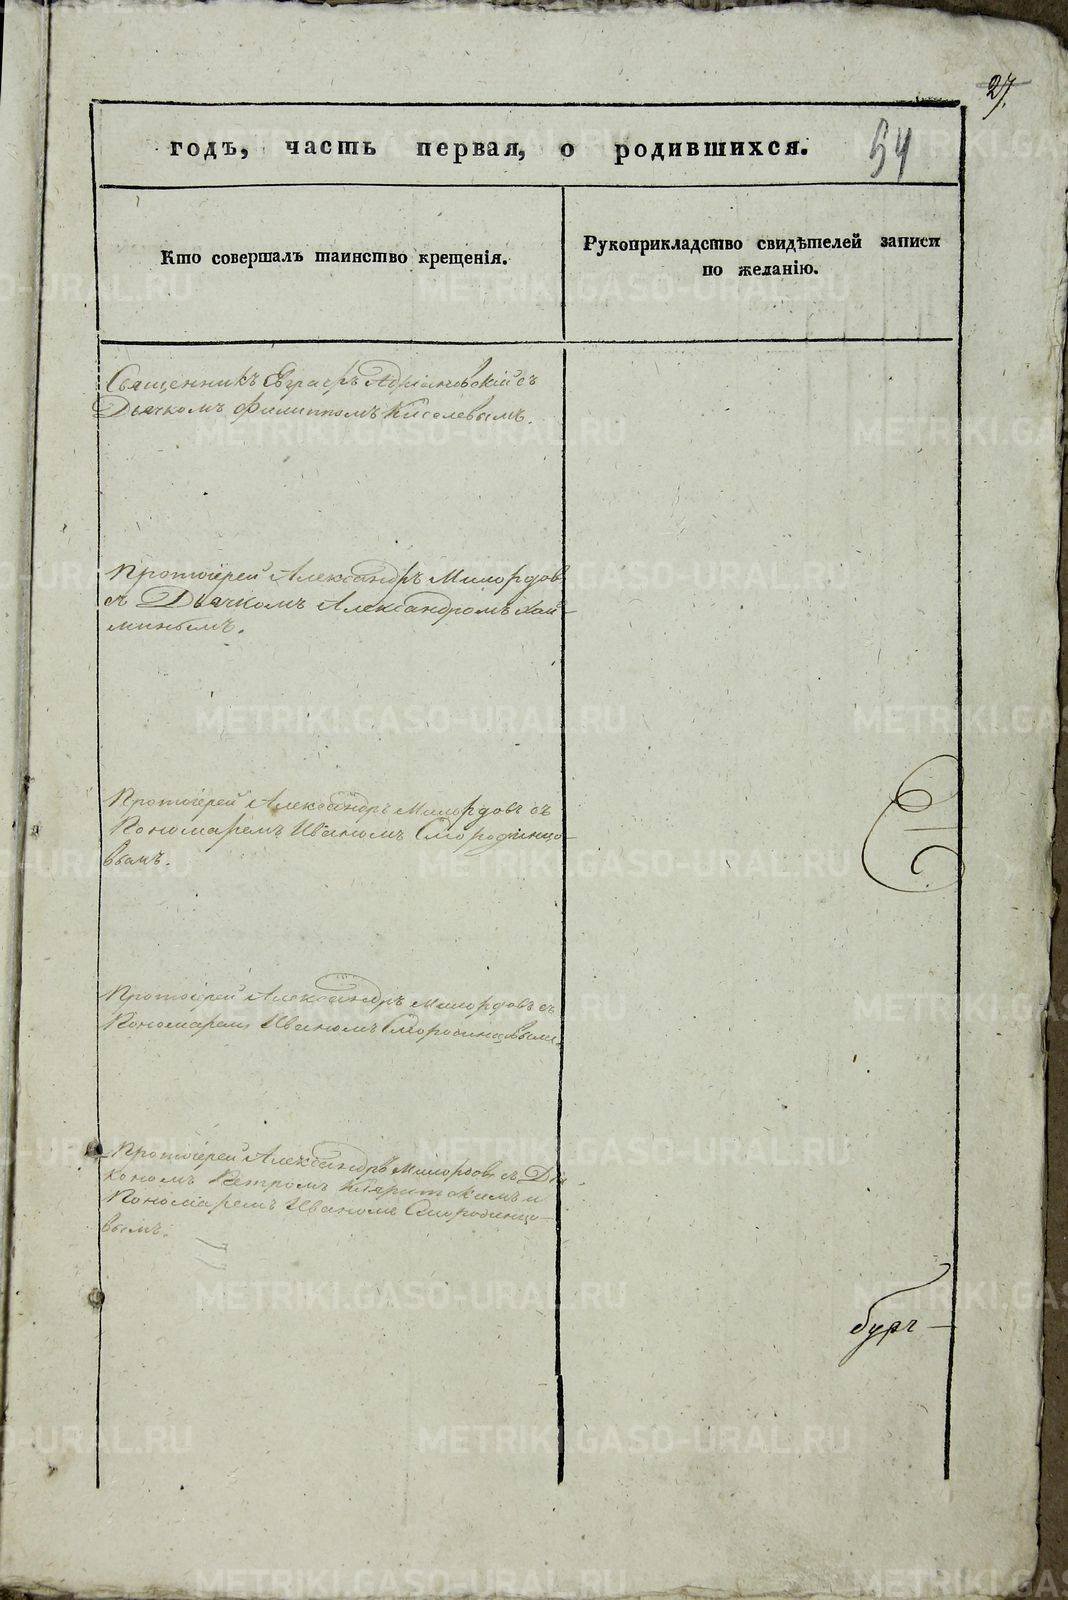 27.
годъ, часть первая, о родившихся.
54
Кто совершалъ таинство крещенія.
Рукоприкладство свидѣтелей записи
по желанію.
Священникъ Евграфъ Адріановскій съ
Дьячкомъ Филиппомъ Киселевымъ.
Протоіерей Александръ Милордовъ
съ Дьячкомъ Александромъ Хай-
минымъ.
Протоіерей Александръ Милордовъ съ
Пономаремъ Иваномъ Смородинцо-
вымъ.
Протоіерей Александръ Милордовъ съ
Пономаремъ Иваномъ Смородинцовымъ.
Протоіерей Александръ Милордовъ съ Діа-
кономъ Петромъ и
Пономаремъ Иваномъ Смородинцо-
вымъ.
бург-
METRIKI.GASO-URAL.RU